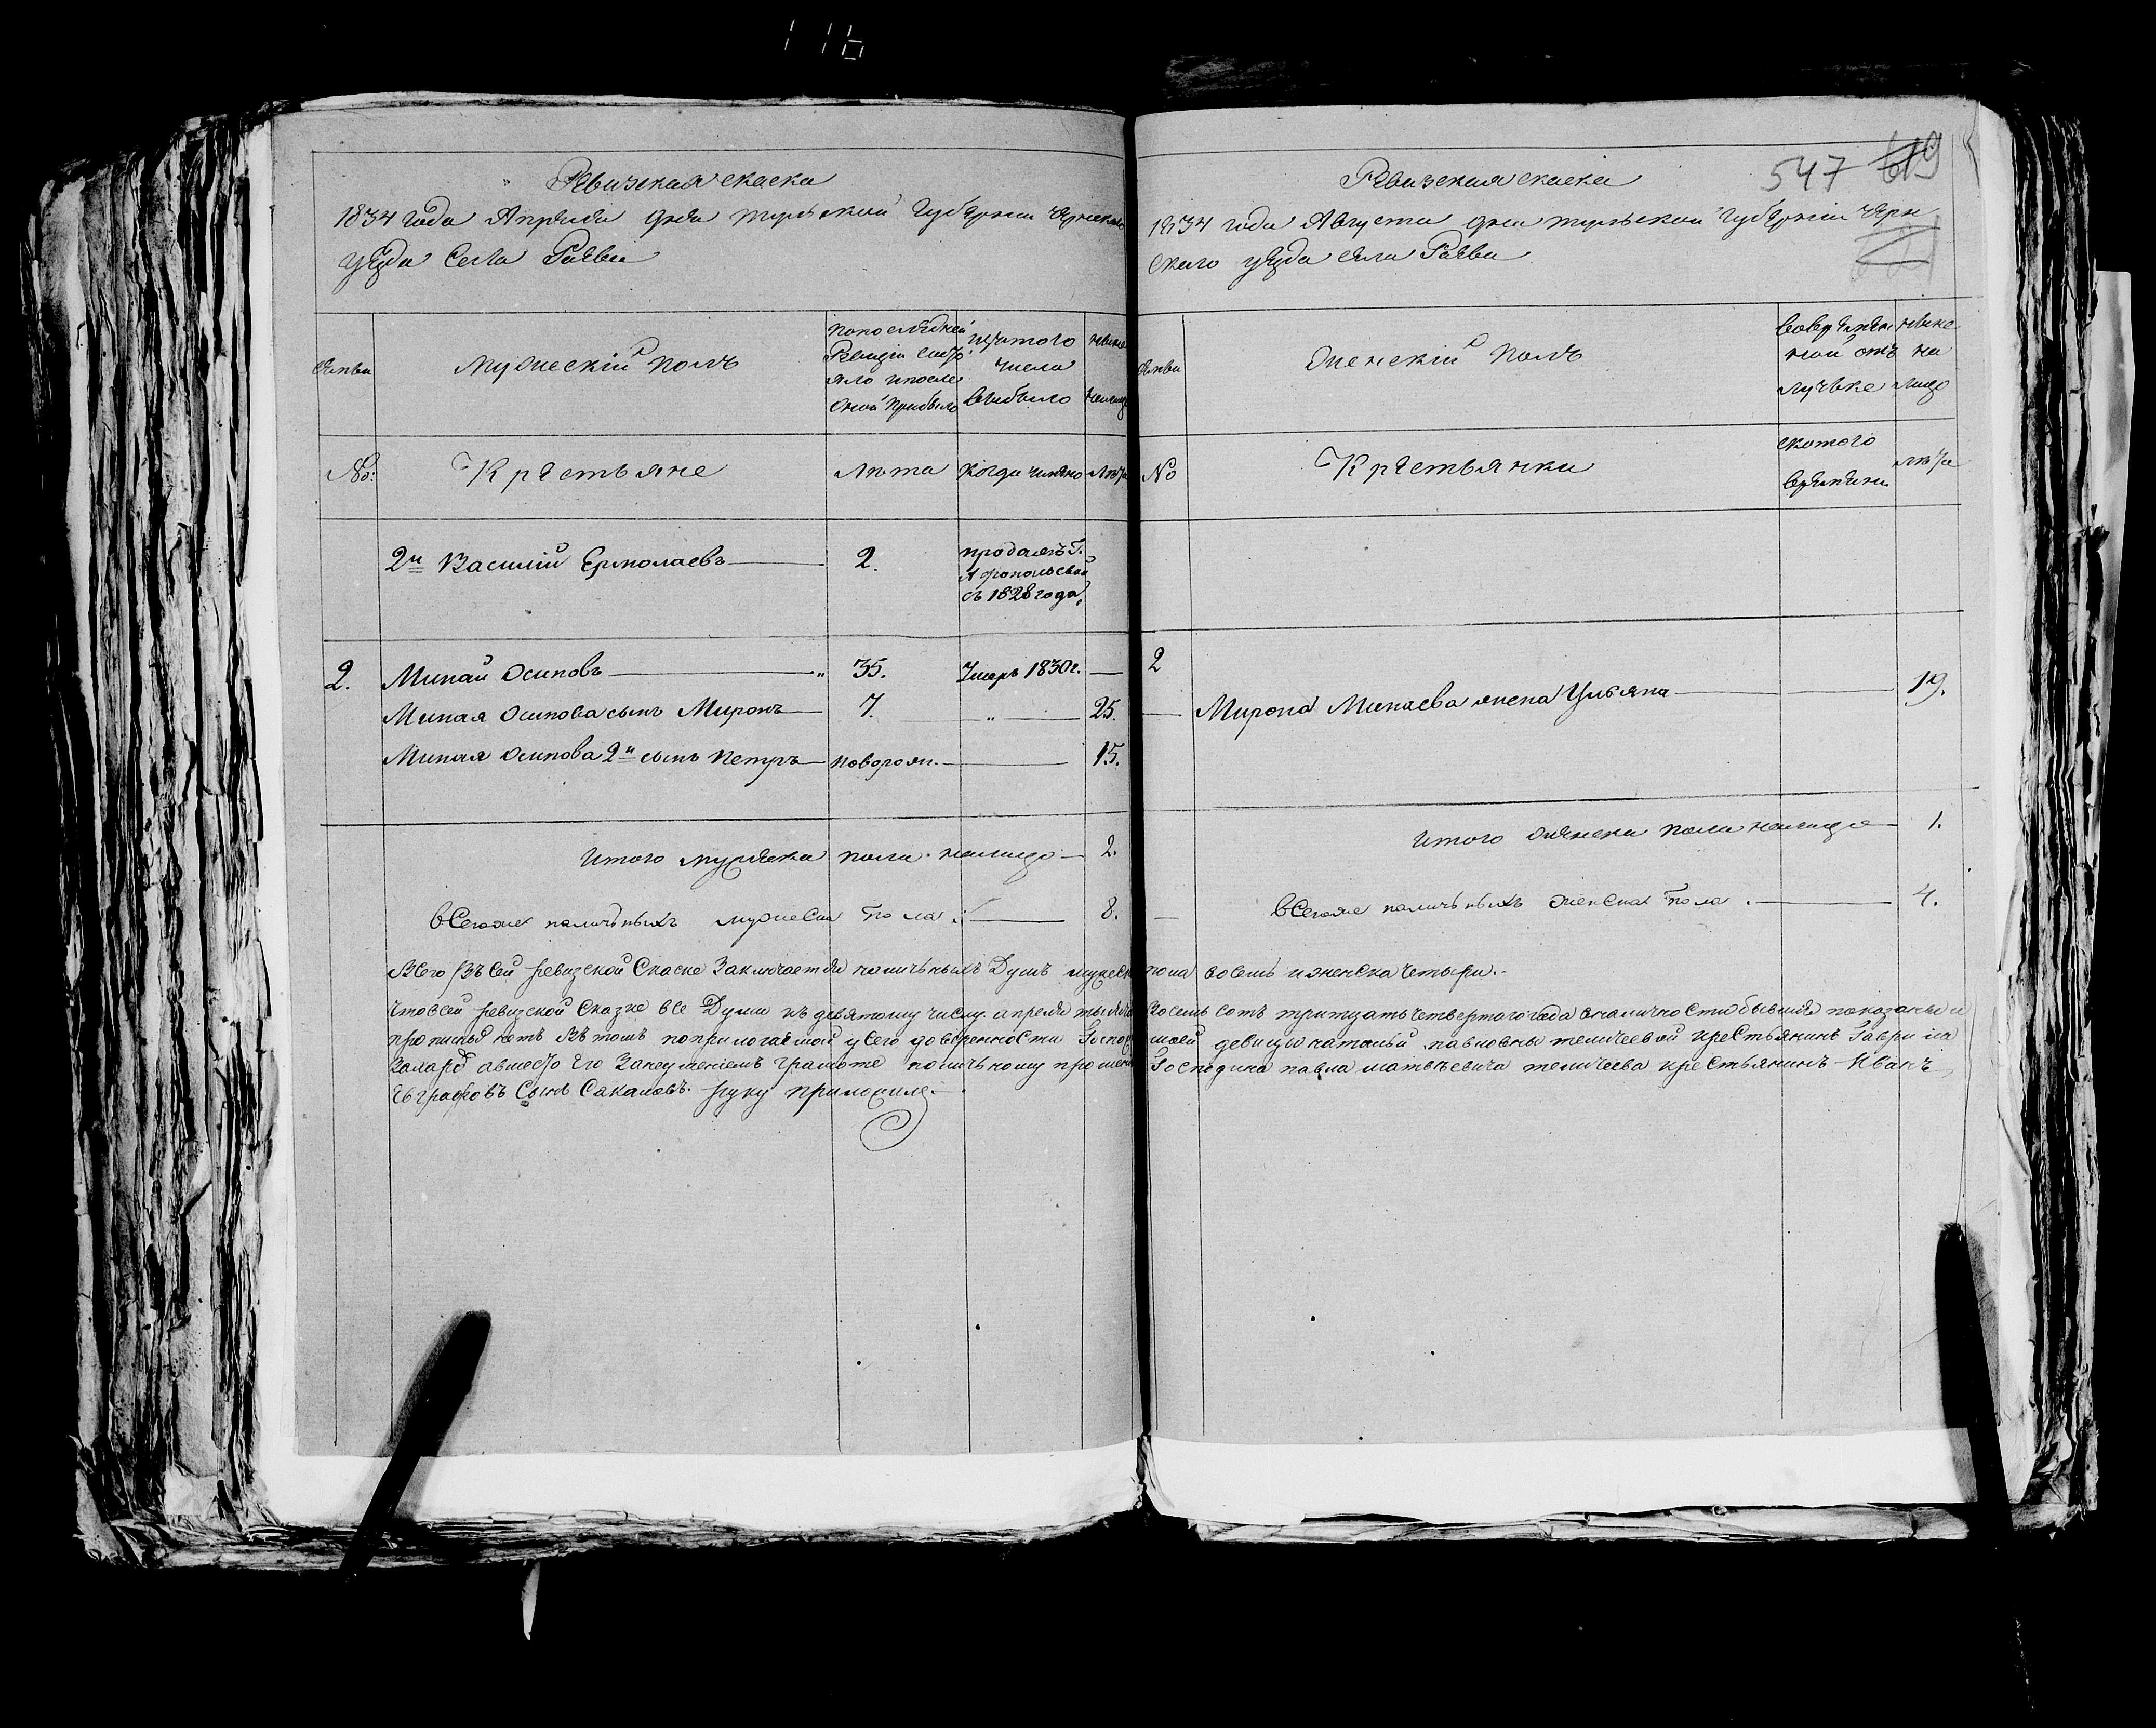 116
Ревизская скаска
1834 года Апреля дня тульской губернии чернскаго
уезда Села Раева
Семьи
мужескій полъ
по последней
Ревизіи состо
яло и после
оной прибыло
из того
числа
выбыло
ныне
налицо
№:
Крестьяне
лета
когда именно
лета
2й Василій Ермолаевъ 2.
проданъ Г.
съ 1828 года
2. Минай Осиповъ 35. Умеръ 1830г.
Миная Осипова сынъ Миронъ 7. " 25.
Миная Осипова 2й сынъ Петръ новорож. 15.
Итого мужеска пола налицо 2.
Всегоже наличныхъ мужеска пола 8.
547 619
Ревизская скаска
1834 года Августа дня тульской губерніи черн
скаго уезда села Раева
Семьи
женскій полъ
во времян
ной отъ
лучьке
ныне
на
лицо
№
Крестьянки
с котого
времяни
лета
2
Мирона Минаева жена Ульяна 19.
Итого женска пола налицо 1.
Всегоже наличьныхъ женска пола 4.
Всего въ сей ревизской Скаске Заключается наличьныхъ Душъ мужеск пола восемь и женска четыри.
что всей ревизской Сказке все Души къ девятому числу апреля тысяча восемь сотъ тритцать четвертого года вналичности бывшія показаны и
прописных нетъ Въ томъ по прилогаемой у сего доверенности Госпожи моей девицы натальи павловны теличеевой крестьянинъ Гаврила
Захаровъ авместо Его Занеуменіемъ грамоте по личьному прошению Господина павла матвѣевича теличеева крестьянинъ Иванъ
Евграфовъ Сынъ Сакаловъ руку приложилъ